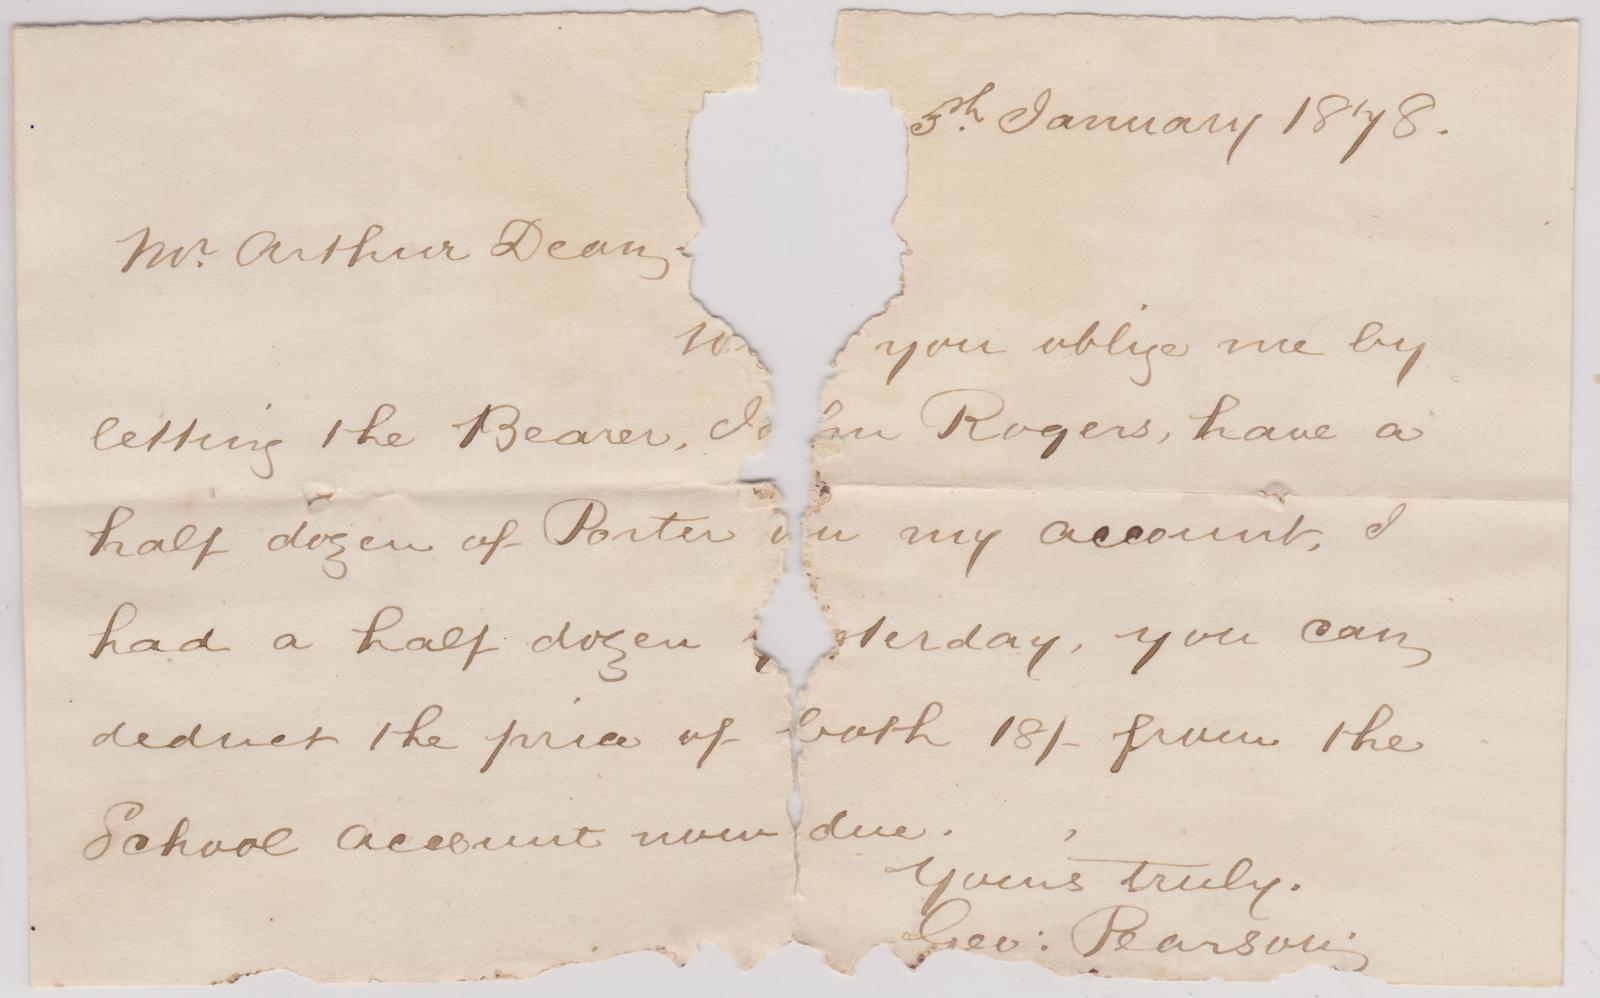 5th January 1878.
Mr. Arthur Dean,
you oblige me by
letting the Bearer, John Rogers, have a
half dozen of Porter on my account, I
had a half dozen yesterday, you can
deduct the price of both 18/- from the
School account now due.
Yours truly.
Geo: Pearson